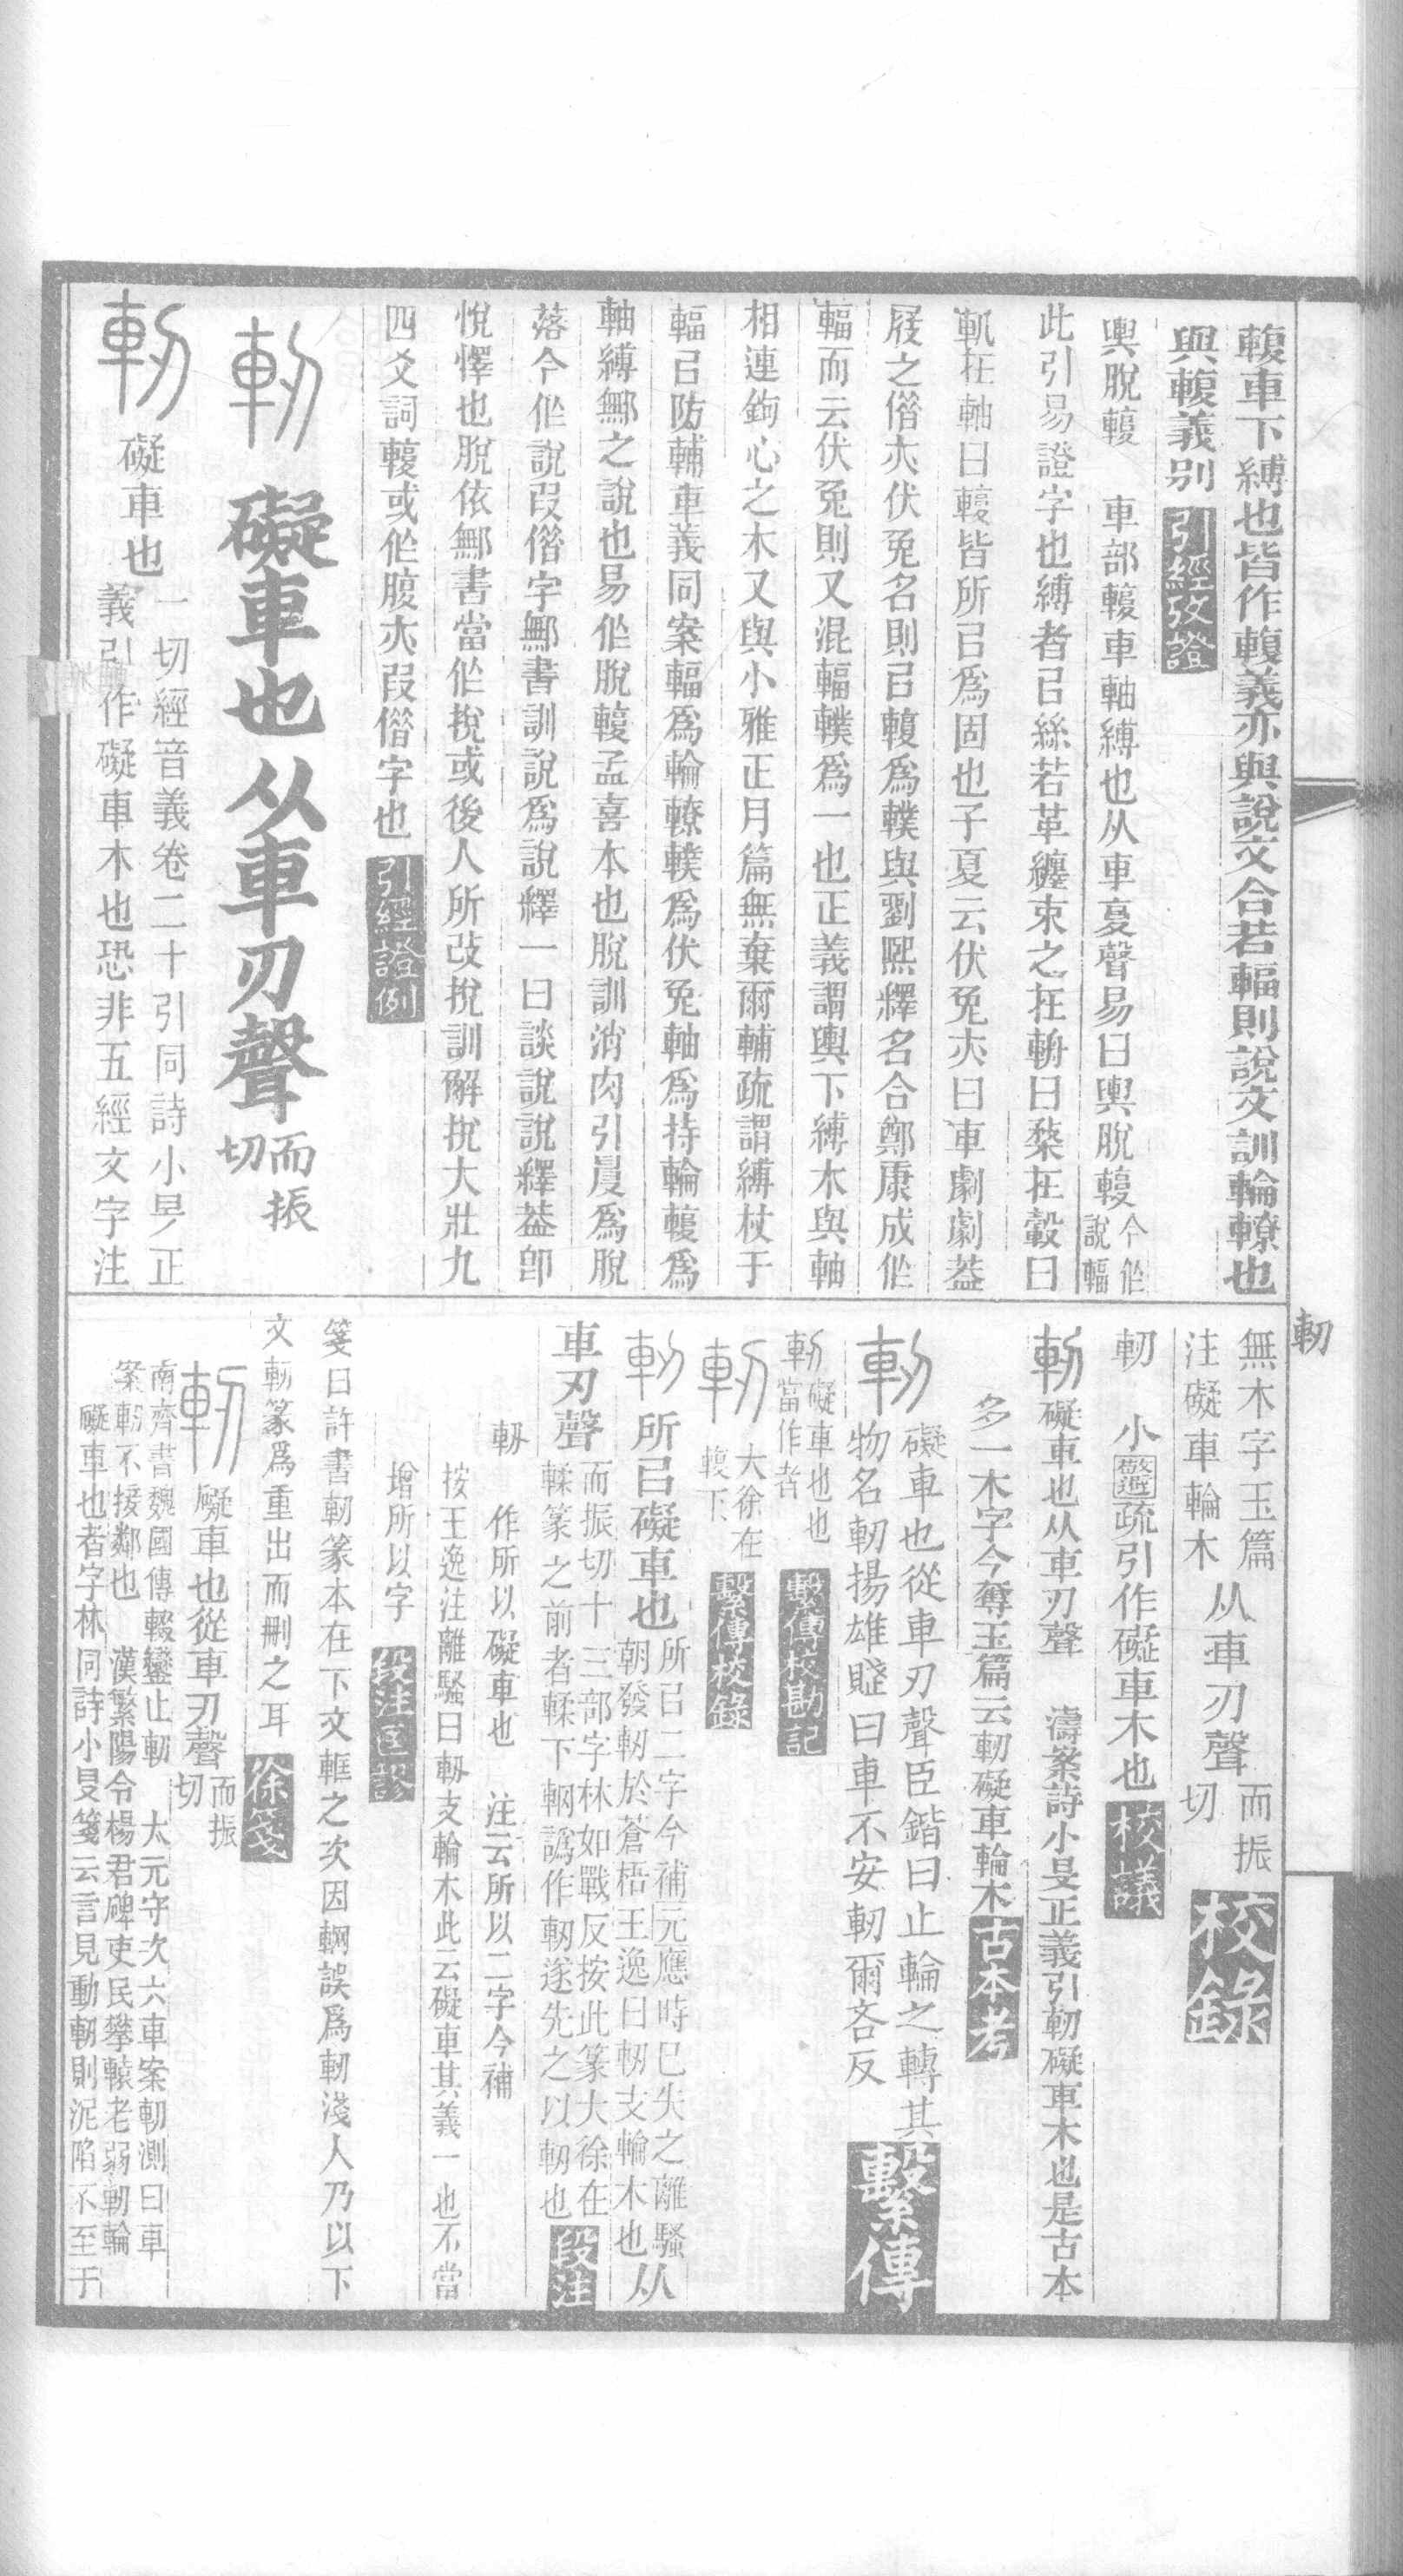 輹車下縛也皆作輹義亦與說文合若輻則說文訓輪轑也
與輹義別 引經攷證
輿脫輹 車部輹車軸縛也从車复聲易曰輿脫輹 今作說輻
此引易證字也縛者㠯絲若革纏束之在輈曰楘在轂曰
軝在軸曰輹皆所㠯爲固也子夏云伏兔亦曰車劇劇葢
屐之僭亦伏兔名則㠯輹爲轐與劉熙釋名合鄭康成作
輻而云伏兔則又混輻轐爲一也正義謂輿下縛木與軸
相連鉤心之木又與小雅正月篇無棄爾輔疏謂縛杖于
輻㠯防輔車義同案輻爲輪轑轐爲伏兔軸爲持輪輹爲
軸縛鄦之說也易作脫輹孟喜本也脫訓消肉引㬅爲脫
落今作說叚僭字鄦書訓說爲說釋一曰談說說釋葢卽
悅懌也脫依鄦書當作挩或後人所改挩訓解挩大壯九
四爻詞輹或作腹亦叚僭字也 引經證例
軔 礙車也从車刃聲 而振切
軔 礙車也 一切經音義卷二十引同詩小旻正
義引作礙車木也恐非五經文字注
軔
無木字玉篇
注礙車輪木 从車刃聲 而振切 校錄
軔 小旻疏引作礙車木也 校議
軔礙車也从車刃聲 濤案詩小旻正義引軔礙車木也是古本
多一木字今奪玉篇云軔礙車輪木 古本考
軔 礙車也從車刃聲臣鍇曰止輪之轉其
物名軔揚雄賦曰車不安軔爾吝反 繫傳
軔礙車也也
當作者 繫傳校勘記
軔 大徐在
輹下 繫傳校錄
軔所㠯礙車也 所㠯二字今補元應時已失之離騷
朝發軔於蒼梧王逸曰軔支輪木也 从
車刃聲 而振切十三部字林如戰反按此篆大徐在
輮篆之前者輮下輞譌作軔遂先之以軔也 段注
軔 作所以礙車也 注云所以二字今補
按王逸注離騷曰軔支輪木此云礙車其義一也不當
增所以字 段注匡謬
箋曰許書軔篆本在下文軭之次因輞誤爲軔淺人乃以下
文軔篆爲重出而刪之耳 徐箋
軔 礙車也從車刃聲 而振切
南齊書魏國傳輟鑾止軔 太元守次六車案軔測曰車
案軔不接鄰也 漢繁陽令楊君碑吏民攀轅老弱軔輪
礙車也者字林同詩小旻箋云言見動軔則泥陷不至于